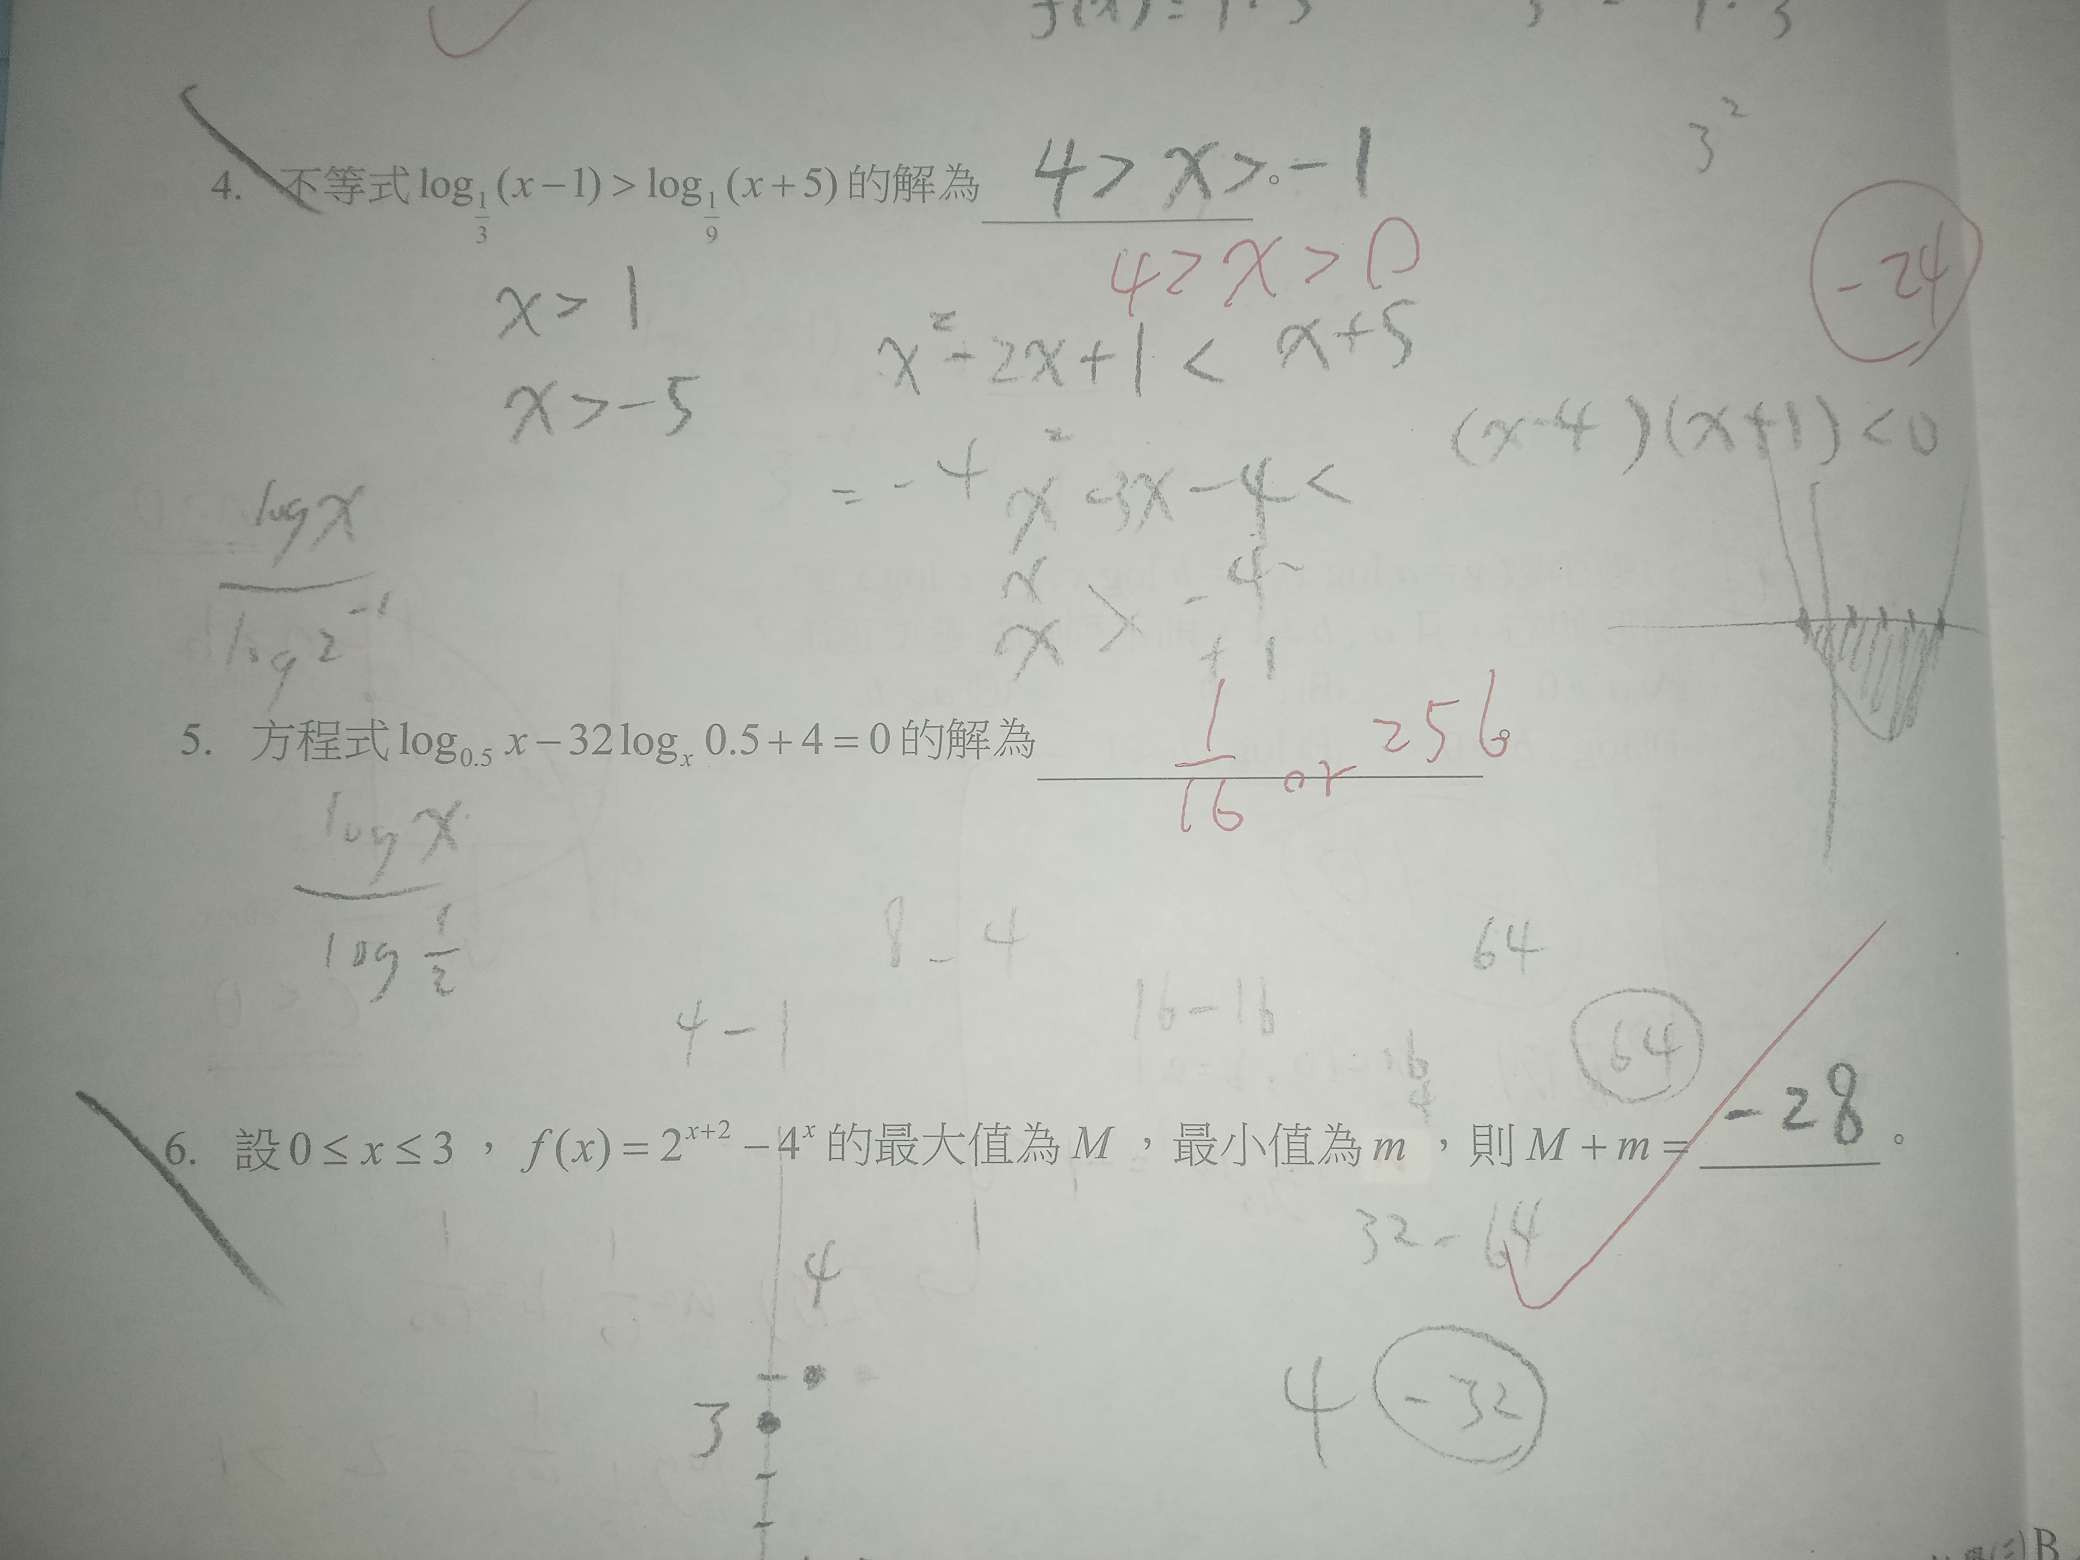 3²
4. 不等式 log_{1/3}(x−1) > log_{1/9}(x+5) 的解為 4 > x > −1 。
4 > x > 0
−24
x > 1
x² − 2x + 1 < x + 5
x > −5
(x−4)(x+1) < 0
= −4 x² −3x −4 <
log x
x −4
log 2⁻¹
x > +1
5. 方程式 log_{0.5} x − 32 log_x 0.5 + 4 = 0 的解為 1/16 or 256 。
log x
log 1/2
8 − 4
64
4 − 1
16 − 16
64
6. 設 0 ≤ x ≤ 3 ， f(x) = 2^{x+2} − 4^x 的最大值為 M ，最小值為 m ，則 M + m = −28 。
32 − 64
4
4 −32
3
B